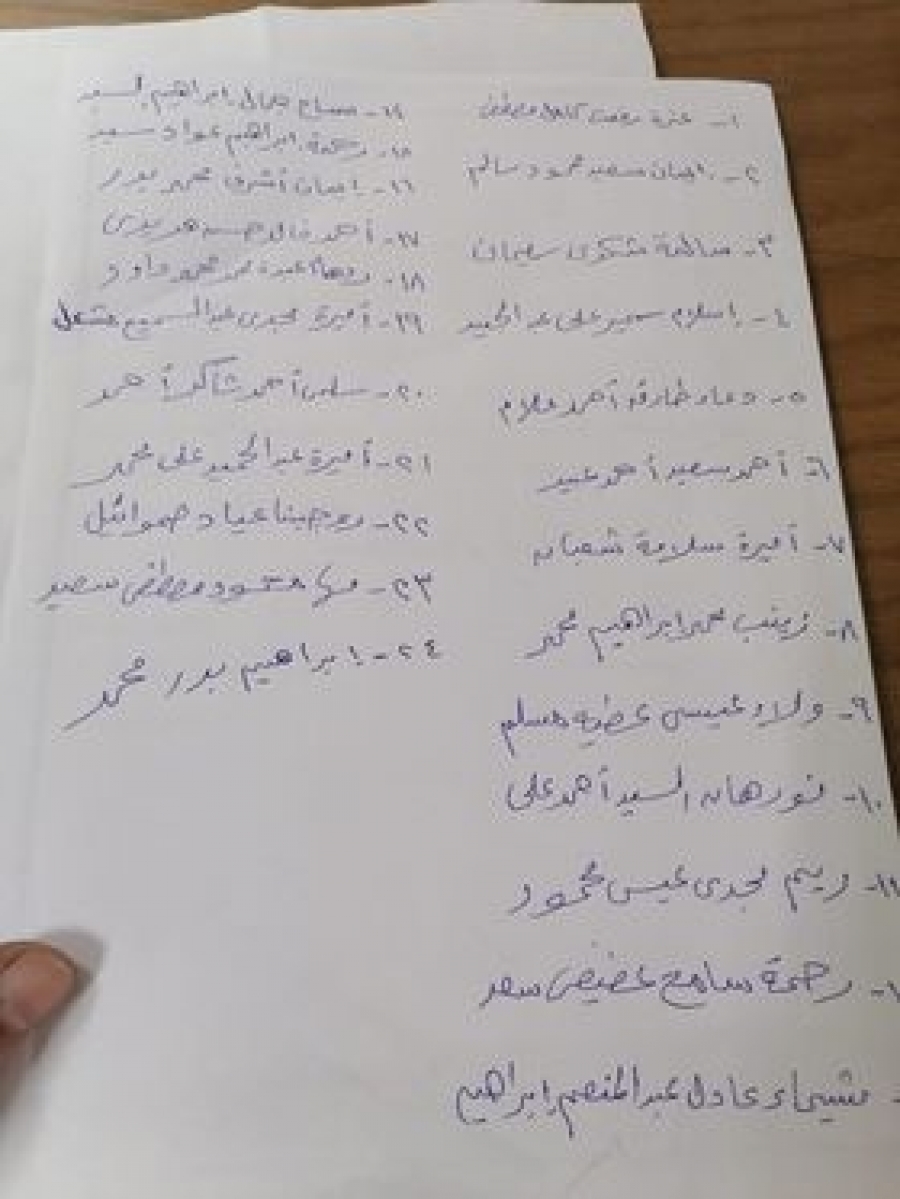 ١- عزة رفعت كامل مصطفى
٢- إيمان سعيد محمود سالم
٣- سالمة شكرى سليمان
٤- إسلام سمير على عبد الحميد
٥- دعاء طارق أحمد علام
٦- أحمد سعيد أحمد عبيد
٧- أميرة سلامة شعبان
٨- زينب محمد ابراهيم محمد
٩- ولاء عيسى عطيه مسلم
١٠- نورهان السيد أحمد على
١١- ريم مجدى عيسى محمود
رحمة سامح سعد
شيماء عادل عبد المنعم إبراهيم
١٤- جمال ابراهيم السيد
١٥- رحمة ابراهيم عواد سعيد
١٦- إيمان أشرف محمد بدر
١٧- أحمد خالد حسن هريدى
١٨- عبده محمد داود
١٩- أميرة مجدى عبد السميع مشعل
٢٠- سلمى أحمد شاكر أحمد
٢١- أميرة عبد الحميد على محمد
٢٢- روجينا عياد صموائيل
٢٣- مها محمود مصطفى سعيد
٢٤- ابراهيم بدر محمد